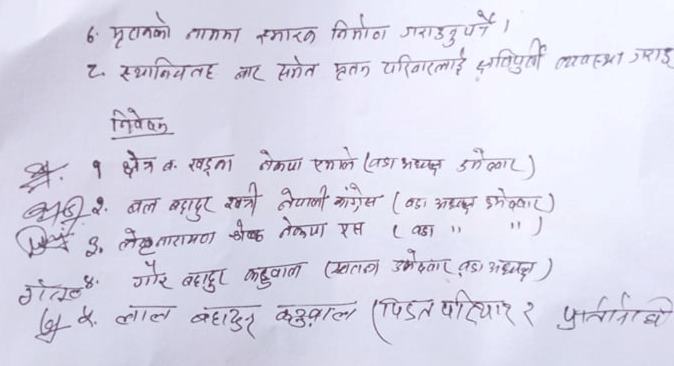 ६. मृतकको नाममा स्मारक निर्माण गराउनु पर्ने ।
८. स्थानिय तह बाट समेत मृतक परिवारलाई क्षतिपुर्ती व्यवस्था गराइ
निवेदक
१ क्षेत्र ब. खड्का नेकपा एमाले (वडा अध्यक्ष उमेदवार)
२. बल बहादुर खत्री नेपाली कांग्रेस (वडा अध्यक्ष उमेदवार)
३. नारायण श्रेष्ठ नेकपा एस (वडा " ")
४. गौर बहादुर कटुवाल (स्वतन्त्र उमेदवार वडा अध्यक्ष)
५. लाल बहादुर कटुवाल (पिडित परिवार र